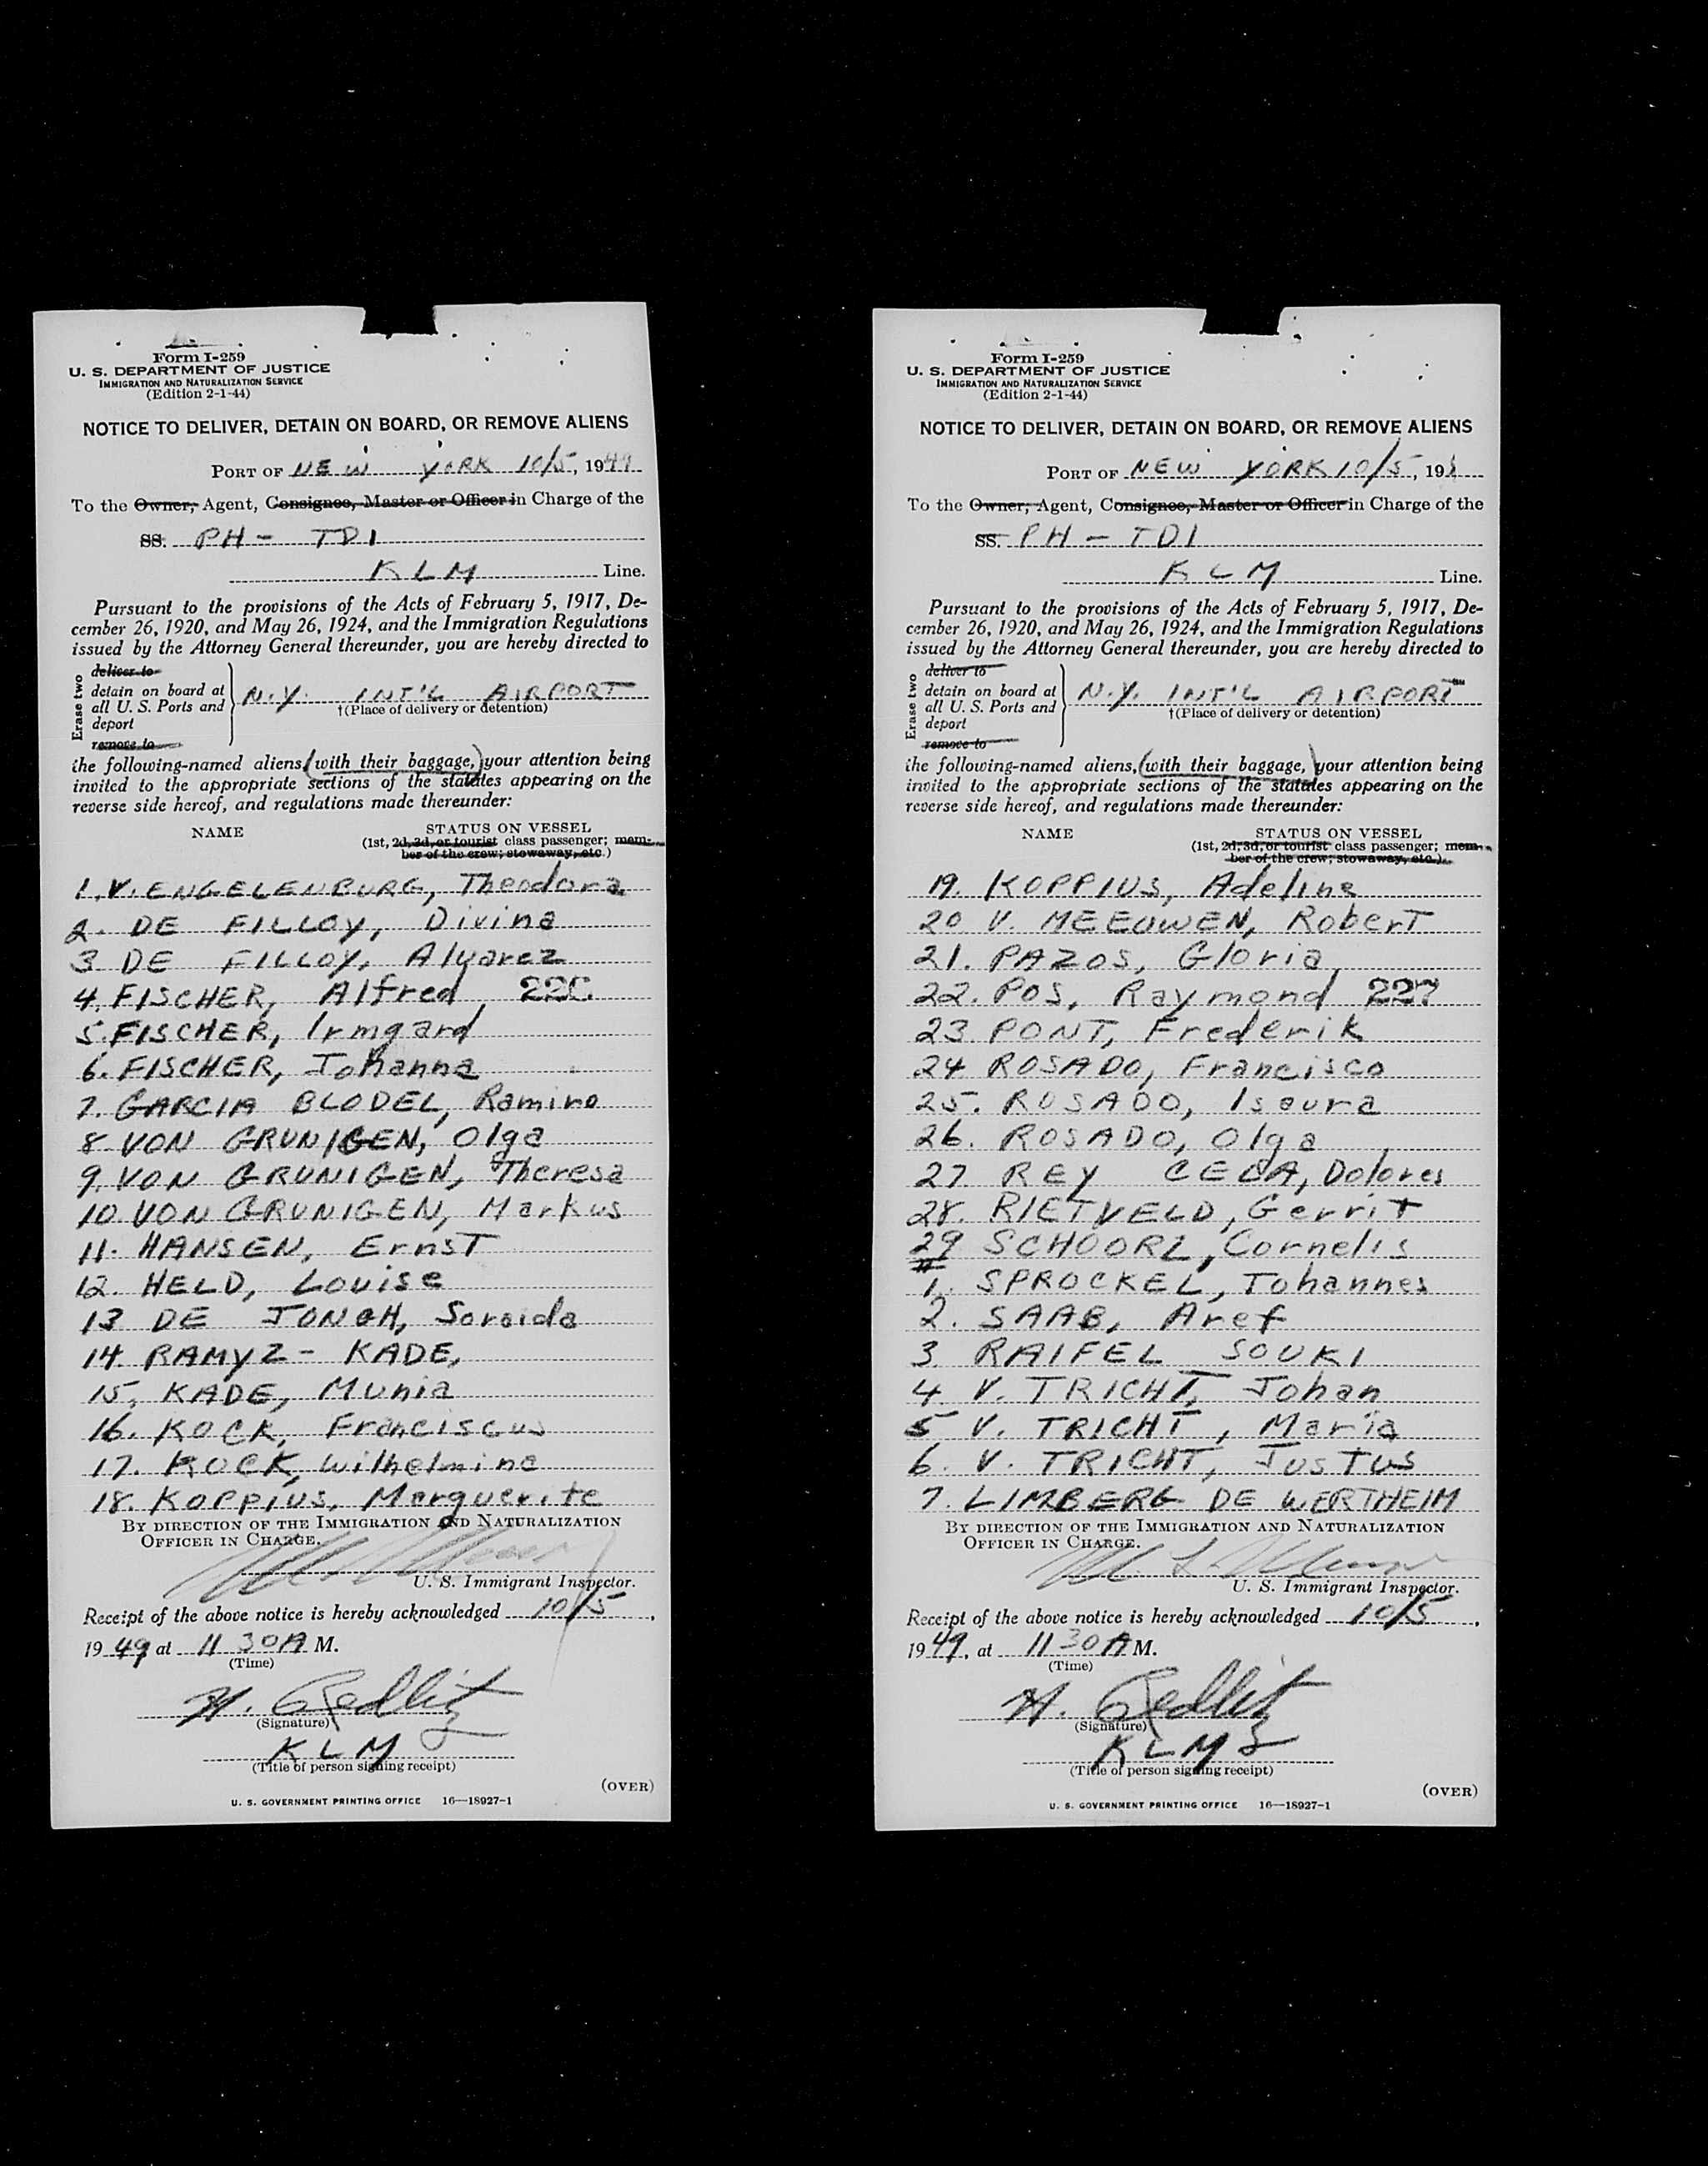 Form I-259
U. S. DEPARTMENT OF JUSTICE
IMMIGRATION AND NATURALIZATION SERVICE
(Edition 2-1-44)
NOTICE TO DELIVER, DETAIN ON BOARD, OR REMOVE ALIENS
PORT OF NEW YORK 10/5, 1949
To the Owner, Agent, Consignee, Master or Officer in Charge of the
SS. PH - TDI
KLM Line.
Pursuant to the provisions of the Acts of February 5, 1917, De-
cember 26, 1920, and May 26, 1924, and the Immigration Regulations
issued by the Attorney General thereunder, you are hereby directed to
Erase two
deliver to
detain on board at
all U. S. Ports and
deport
remove to
N.Y. INT'L AIRPORT
†(Place of delivery or detention)
the following-named aliens, (with their baggage,) your attention being
invited to the appropriate sections of the statutes appearing on the
reverse side hereof, and regulations made thereunder:
NAME STATUS ON VESSEL
(1st, 2d, 3d, or tourist class passenger; mem-
ber of the crew; stowaway, etc.)
1. V. ENGELENBURG, Theodora
2. DE FILLOY, Divina
3 DE FILLOY, Alvarez
4. FISCHER, Alfred 226
5. FISCHER, Irmgard
6. FISCHER, Johanna
7. GARCIA BLODEL, Ramiro
8. VON GRUNIGEN, Olga
9. VON GRUNIGEN, Theresa
10. VON GRUNIGEN, Markus
11. HANSEN, Ernst
12. HELD, Louise
13 DE JONGH, Soraida
14. RAMYZ - KADE,
15. KADE, Munia
16. KOCK, Franciscus
17. KOCK, Wilhelmine
18. KOPPIUS, Marguerite
BY DIRECTION OF THE IMMIGRATION AND NATURALIZATION
OFFICER IN CHARGE.
U. S. Immigrant Inspector.
Receipt of the above notice is hereby acknowledged 10/5,
1949 at 11 30 A M.
(Time)
H. Redlitz
(Signature)
KLM
(Title of person signing receipt)
(OVER)
U. S. GOVERNMENT PRINTING OFFICE 16—18927-1
Form I-259
U. S. DEPARTMENT OF JUSTICE
IMMIGRATION AND NATURALIZATION SERVICE
(Edition 2-1-44)
NOTICE TO DELIVER, DETAIN ON BOARD, OR REMOVE ALIENS
PORT OF NEW YORK 10/5, 19
To the Owner, Agent, Consignee, Master or Officer in Charge of the
SS. PH - TDI
KLM Line.
Pursuant to the provisions of the Acts of February 5, 1917, De-
cember 26, 1920, and May 26, 1924, and the Immigration Regulations
issued by the Attorney General thereunder, you are hereby directed to
Erase two
deliver to
detain on board at
all U. S. Ports and
deport
remove to
N.Y. INT'L AIRPORT
†(Place of delivery or detention)
the following-named aliens, (with their baggage,) your attention being
invited to the appropriate sections of the statutes appearing on the
reverse side hereof, and regulations made thereunder:
NAME STATUS ON VESSEL
(1st, 2d, 3d, or tourist class passenger; mem-
ber of the crew; stowaway, etc.)
19. KOPPIUS, Adeline
20 V. MEEUWEN, Robert
21. PAZOS, Gloria
22. POS, Raymond 227
23. PONT, Frederik
24 ROSADO, Francisco
25. ROSADO, Isaura
26. ROSADO, Olga
27. REY CELA, Dolores
28. RIETVELD, Gerrit
29 SCHOORL, Cornelis
1. SPROCKEL, Johannes
2. SAAB, Aref
3 RAIFEL SOUKI
4 V. TRICHT, Johan
5 V. TRICHT, Maria
6. V. TRICHT, Justus
7. LIMBERG DE WERTHEIM
BY DIRECTION OF THE IMMIGRATION AND NATURALIZATION
OFFICER IN CHARGE.
U. S. Immigrant Inspector.
Receipt of the above notice is hereby acknowledged 10/5,
1949, at 11 30 A M.
(Time)
H. Redlitz
(Signature)
KLM
(Title of person signing receipt)
(OVER)
U. S. GOVERNMENT PRINTING OFFICE 16—18927-1